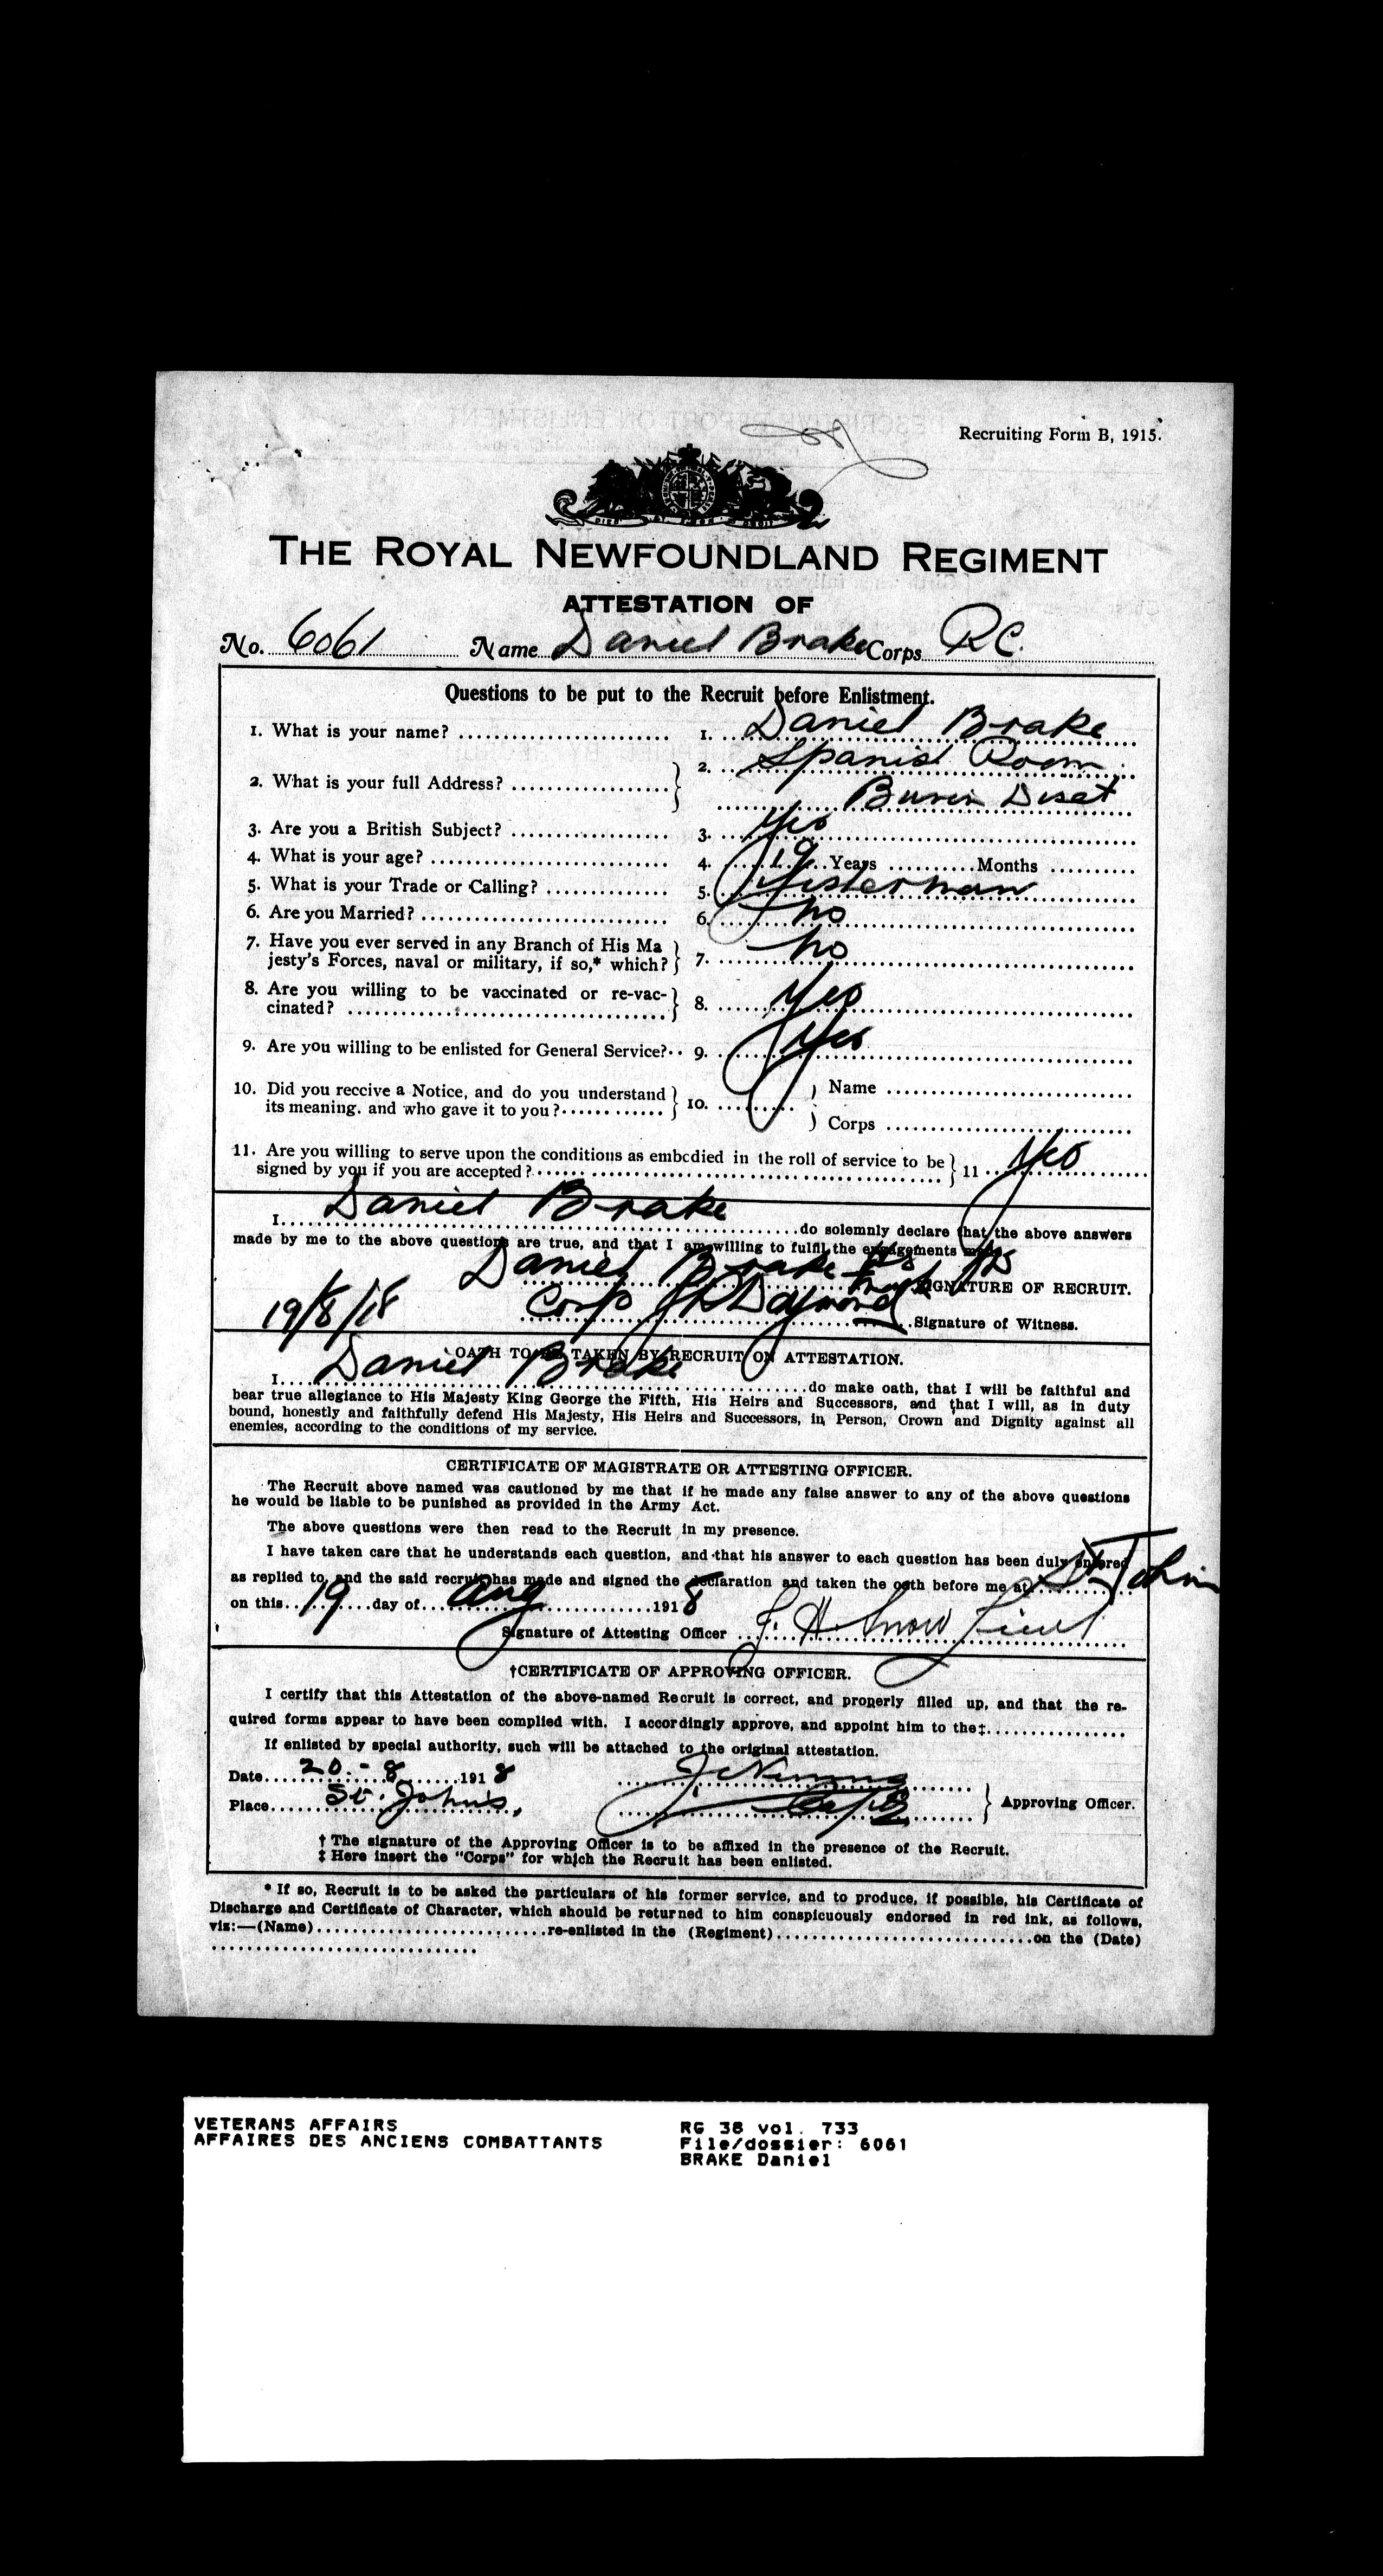 Recruiting Form B, 1915.
THE ROYAL NEWFOUNDLAND REGIMENT
ATTESTATION OF
No. 6061 Name Daniel Brake Corps R.C.
Questions to be put to the Recruit before Enlistment.
1. What is your name? 1. Daniel Brake
2. What is your full Address? 2. Spanish Room
Burin Disct
3. Are you a British Subject? 3. Yes
4. What is your age? 4. 19 Years Months
5. What is your Trade or Calling? 5. Fisherman
6. Are you Married? 6. No
7. Have you ever served in any Branch of His Ma
jesty's Forces, naval or military, if so,* which? 7. No
8. Are you willing to be vaccinated or re-vac-
cinated? 8. Yes
9. Are you willing to be enlisted for General Service? 9. Yes
10. Did you receive a Notice, and do you understand Name
its meaning. and who gave it to you? 10. Corps
11. Are you willing to serve upon the conditions as embodied in the roll of service to be
signed by you if you are accepted? 11 Yes
I Daniel Brake do solemnly declare that the above answers
made by me to the above questions are true, and that I am willing to fulfil the engagements made.
Daniel Brake His mark SIGNATURE OF RECRUIT.
19/8/18 Corp Signature of Witness.
OATH TO BE TAKEN BY RECRUIT ON ATTESTATION.
I Daniel Brake do make oath, that I will be faithful and
bear true allegiance to His Majesty King George the Fifth, His Heirs and Successors, and that I will, as in duty
bound, honestly and faithfully defend His Majesty, His Heirs and Successors, in Person, Crown and Dignity against all
enemies, according to the conditions of my service.
CERTIFICATE OF MAGISTRATE OR ATTESTING OFFICER.
The Recruit above named was cautioned by me that if he made any false answer to any of the above questions
he would be liable to be punished as provided in the Army Act.
The above questions were then read to the Recruit in my presence.
I have taken care that he understands each question, and that his answer to each question has been duly entered
as replied to, and the said recruit has made and signed the declaration and taken the oath before me at St John's
on this 19 day of Aug 1918
Signature of Attesting Officer F. H. Snow Lieut
†CERTIFICATE OF APPROVING OFFICER.
I certify that this Attestation of the above-named Recruit is correct, and properly filled up, and that the re-
quired forms appear to have been complied with. I accordingly approve, and appoint him to the‡
If enlisted by special authority, such will be attached to the original attestation.
Date 20-8 1918
Place St. John's, Capt Approving Officer.
† The signature of the Approving Officer is to be affixed in the presence of the Recruit.
‡ Here insert the "Corps" for which the Recruit has been enlisted.
* If so, Recruit is to be asked the particulars of his former service, and to produce, if possible, his Certificate of
Discharge and Certificate of Character, which should be returned to him conspicuously endorsed in red ink, as follows,
viz:—(Name) re-enlisted in the (Regiment) on the (Date)
VETERANS AFFAIRS RG 38 vol. 733
AFFAIRES DES ANCIENS COMBATTANTS File/dossier: 6061
BRAKE Daniel